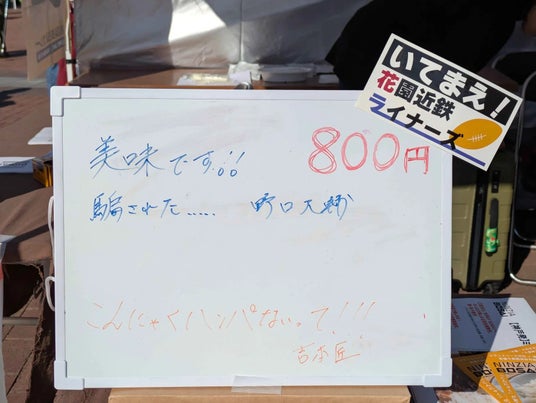 いてまえ！
花園近鉄
ライナーズ
美味です!!
800円
騙された..... 野口大輔
こんにゃくハンパないって!!!
吉本匠
NINZIA